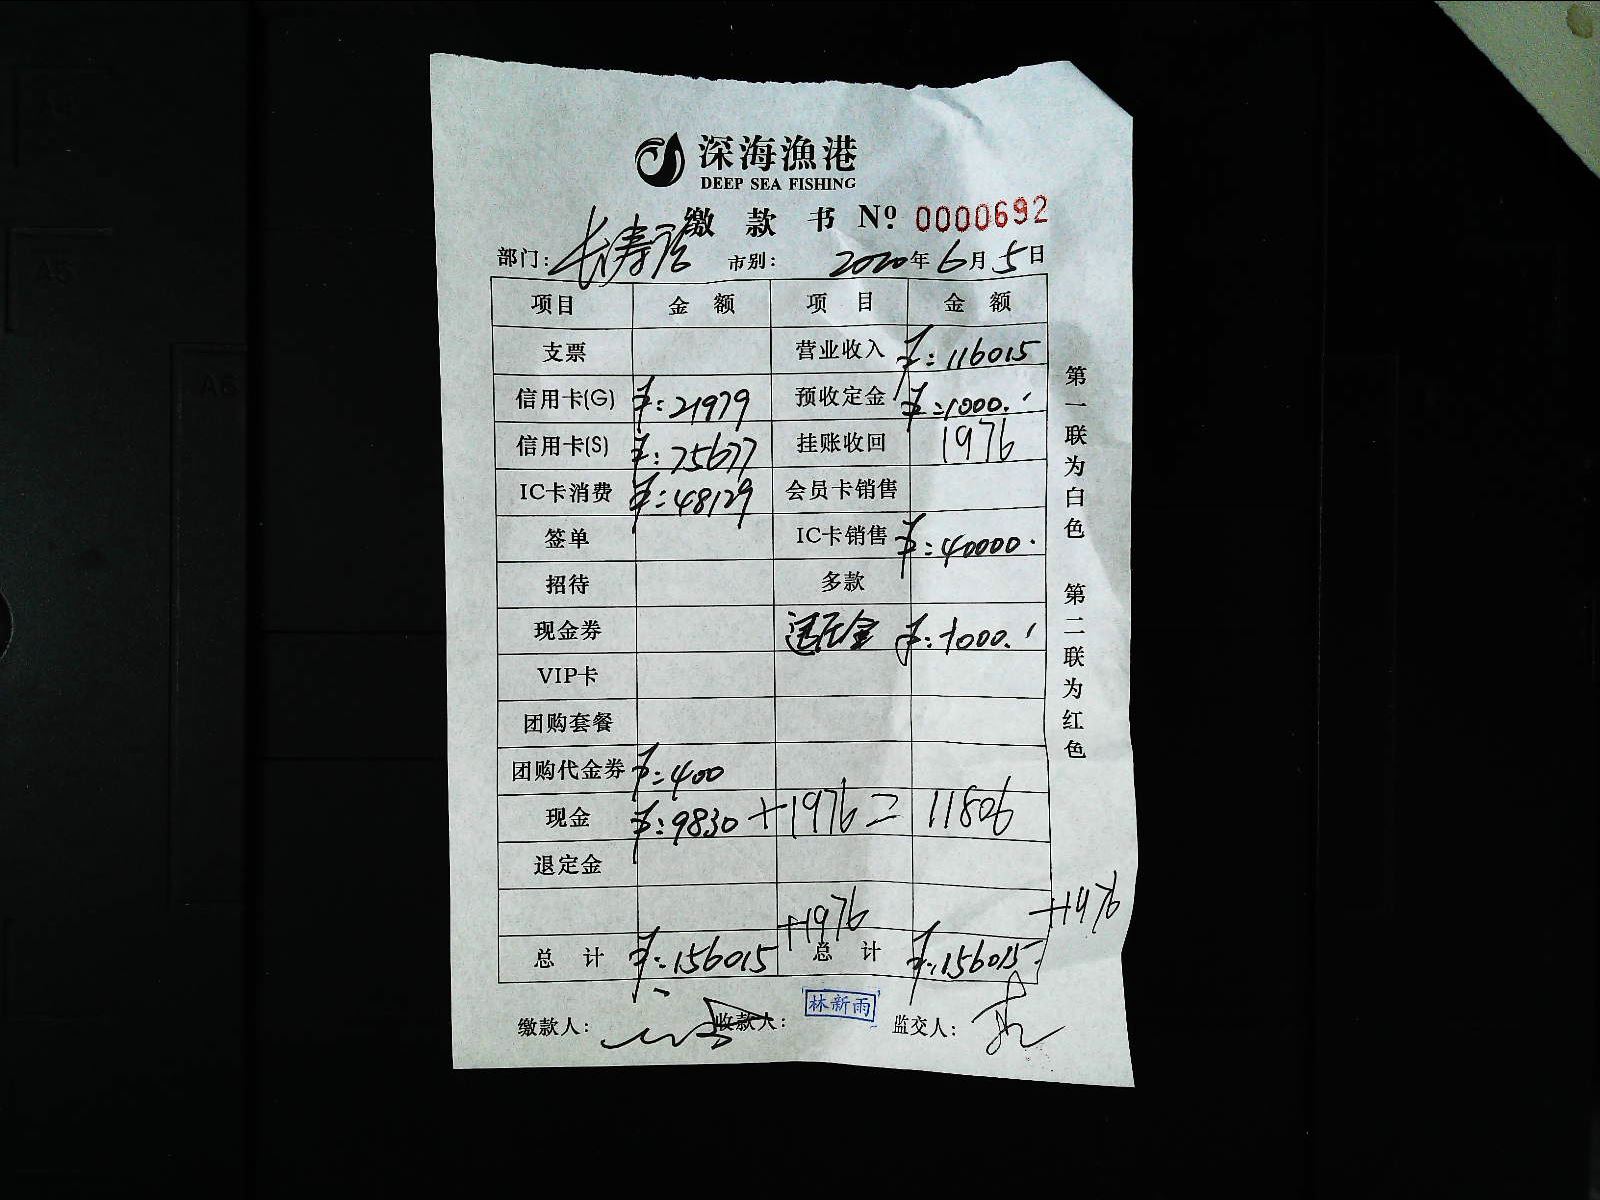 深海漁港
DEEP SEA FISHING
缴 款 书 Nº: 0000692
部门: 长寿店 市别: 2020年6月5日
项目 金 额 项 目 金 额
支票 营业收入 ¥:116015
信用卡(G) ¥:21979 预收定金 ¥:1000.
信用卡(S) ¥:75677 挂账收回 1976
IC卡消费 ¥:48129 会员卡销售
签单 IC卡销售 ¥:40000.
招待 多款
现金券 退定金 ¥:-1000.
VIP卡
团购套餐
团购代金券 ¥:400
现金 ¥:9830 +1976 = 11806
退定金
+1976 +1976
总 计 ¥:156015 总 计 ¥:156015
缴款人: 收款人: 林新雨 监交人:
第一联为白色 第二联为红色
A5
A6